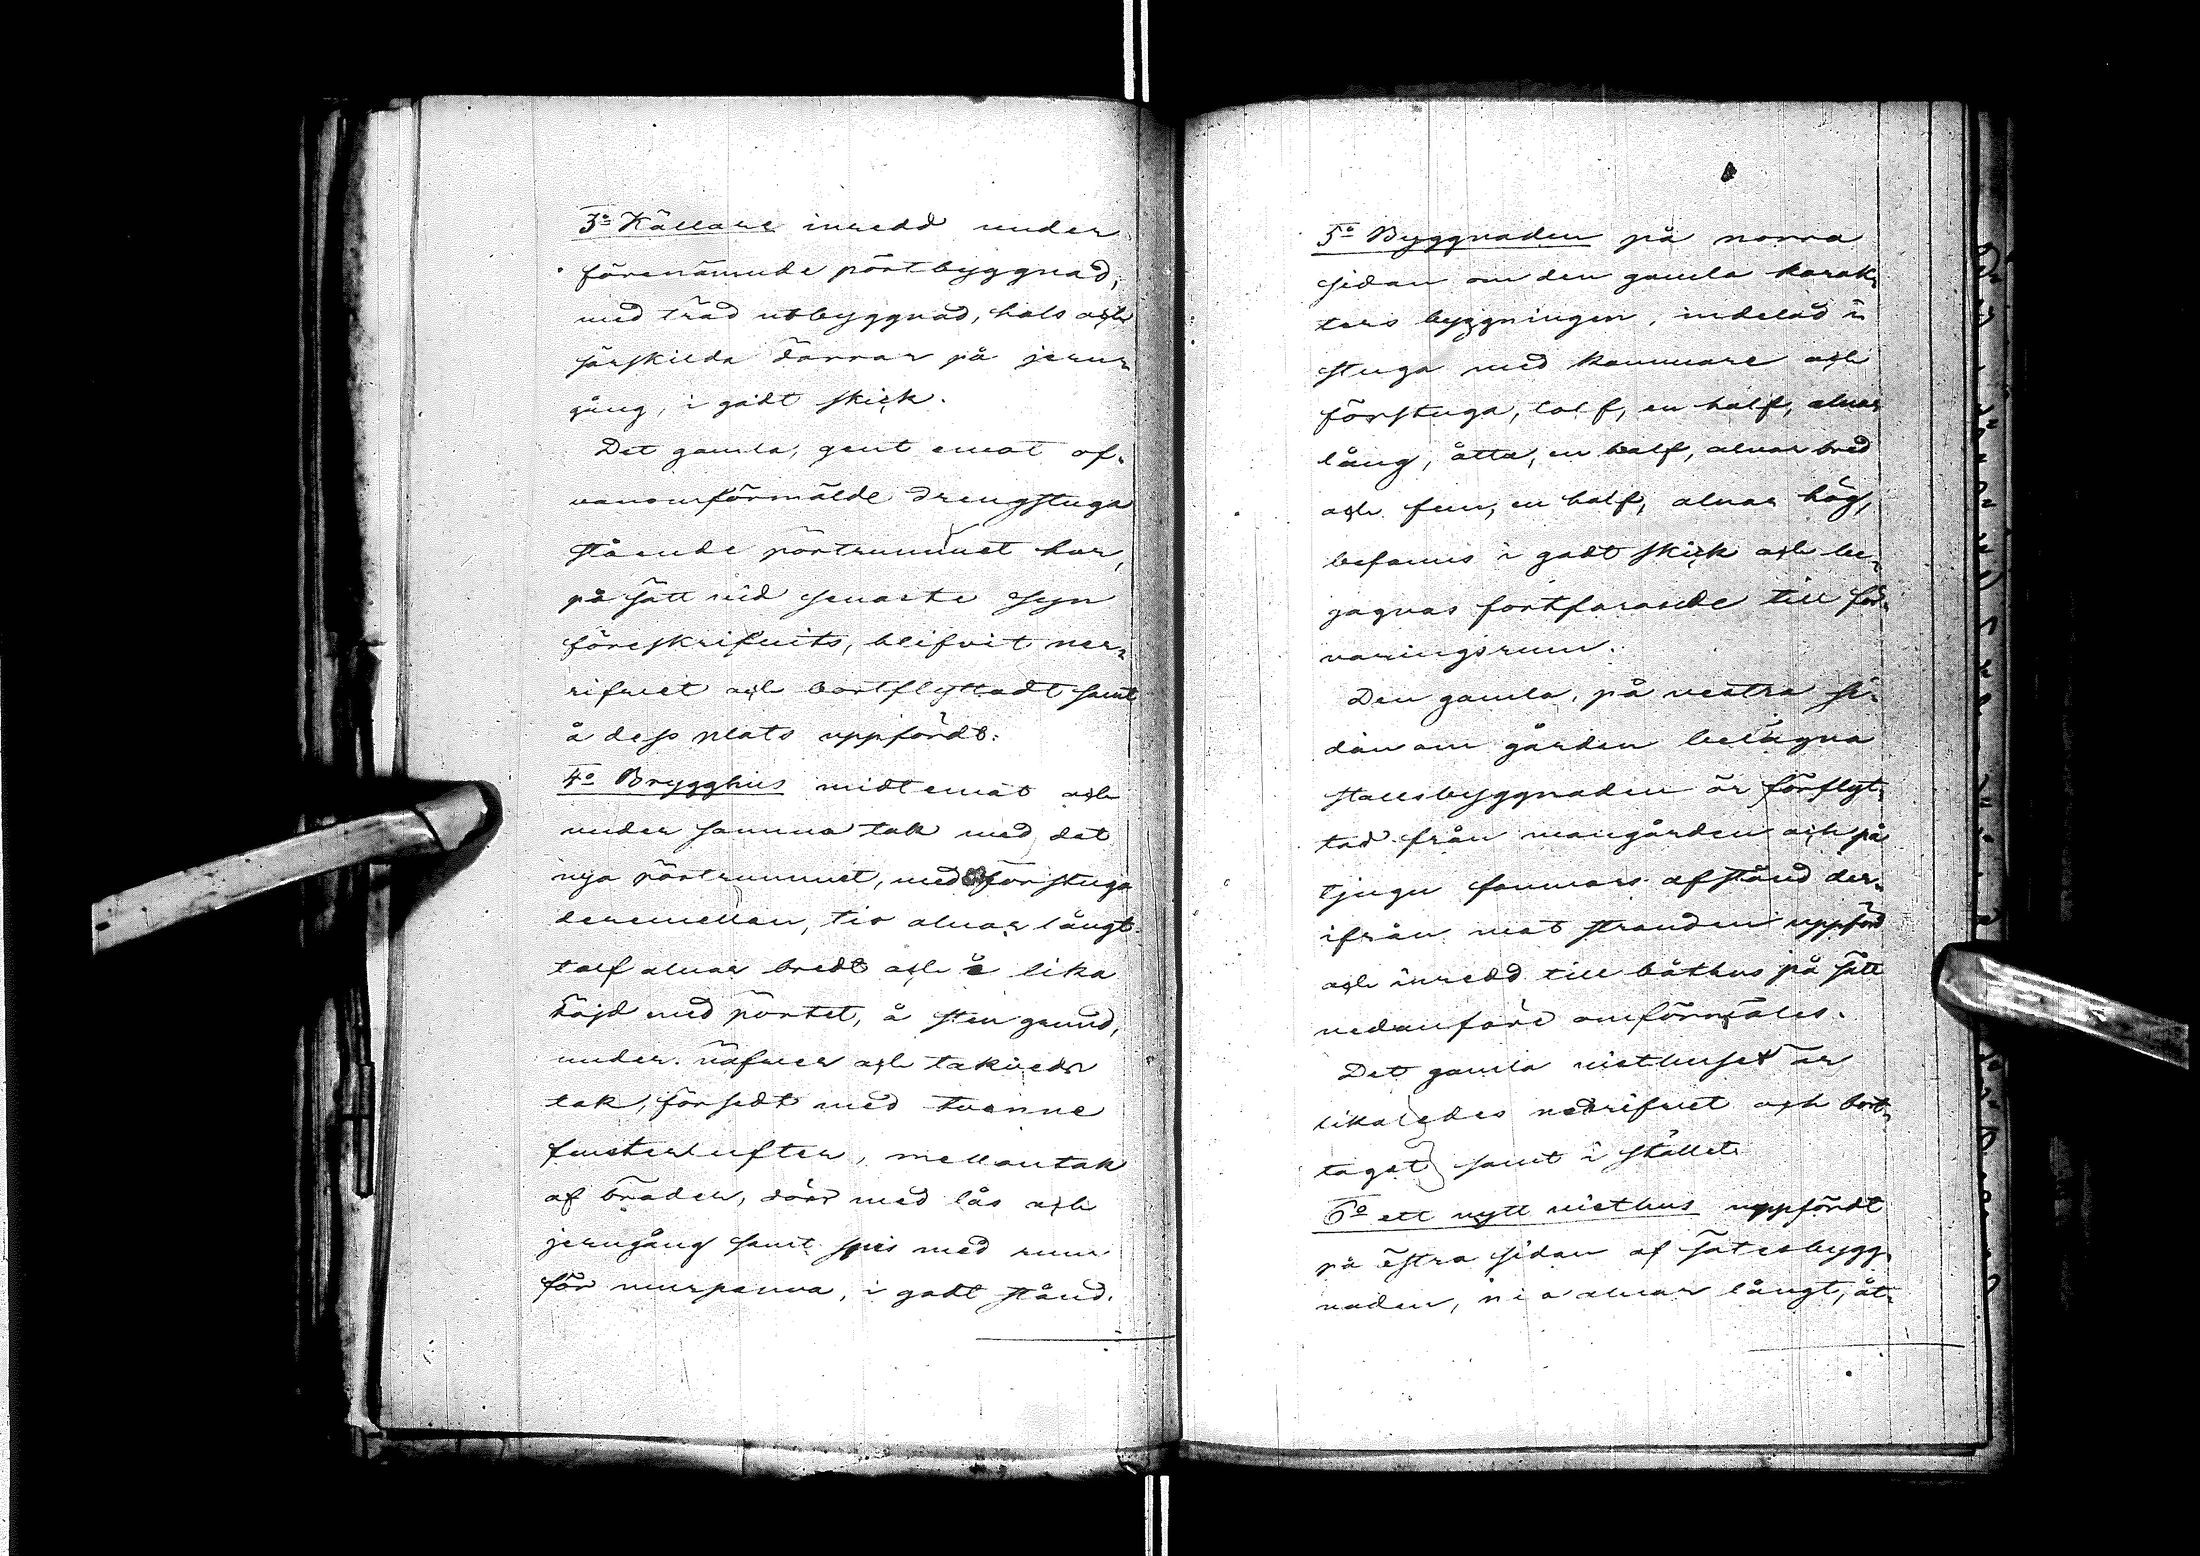 3:o Källare inredd under
förenämnde pörtbyggnad,
med träd utbyggnad, hals och
särskilda dörrar på jern-
gång, i godt skick.
Det gamla, gent emot of-
vanomförmälde drengstuga
stående pörtrummet har,
på sätt vid senaste syn
föreskrifvits, blifvit ner-
rifvet och bortflyttadt samt
å dess plats uppfördt.
4:o Brygghus midt emot och
under samma tak med det
nya pörtrummet, med förstuga
deremellan, tio alnar långt
tolf alnar bredt och å lika
höjd med pörtet, å sten grund,
under näfver och takveds
tak, försedt med tvenne
fensterlufter, mellantak
af bräder, dörr med lås och
jerngång samt spis med rum
för murpanna, i godt stånd.
5:o Byggnaden på norra
sidan om den gamla karak-
ters byggningen, indelad i
stuga med kammare och
förstuga, tolf, en half, alnar
lång, åtta, en half, alnar bred
och fem, en half, alnar hög,
befanns i godt skick och be-
gagnas fortfarande till för-
varingsrum.
Den gamla, på vestra si-
dan om gården belägna
stallsbyggnaden är förflyt-
tad från mangården och på
tjugu famnars afstånd der-
ifrån mot stranden uppförd
och inredd till båthus på sätt
nedanföre omförmäles.
Det gamla visthuset är
likaledes nedrifvet och bort-
taget samt i stället
6:o ett nytt visthus uppfördt
på östra sidan af sätesbygg-
naden, nio alnar långt, åt-